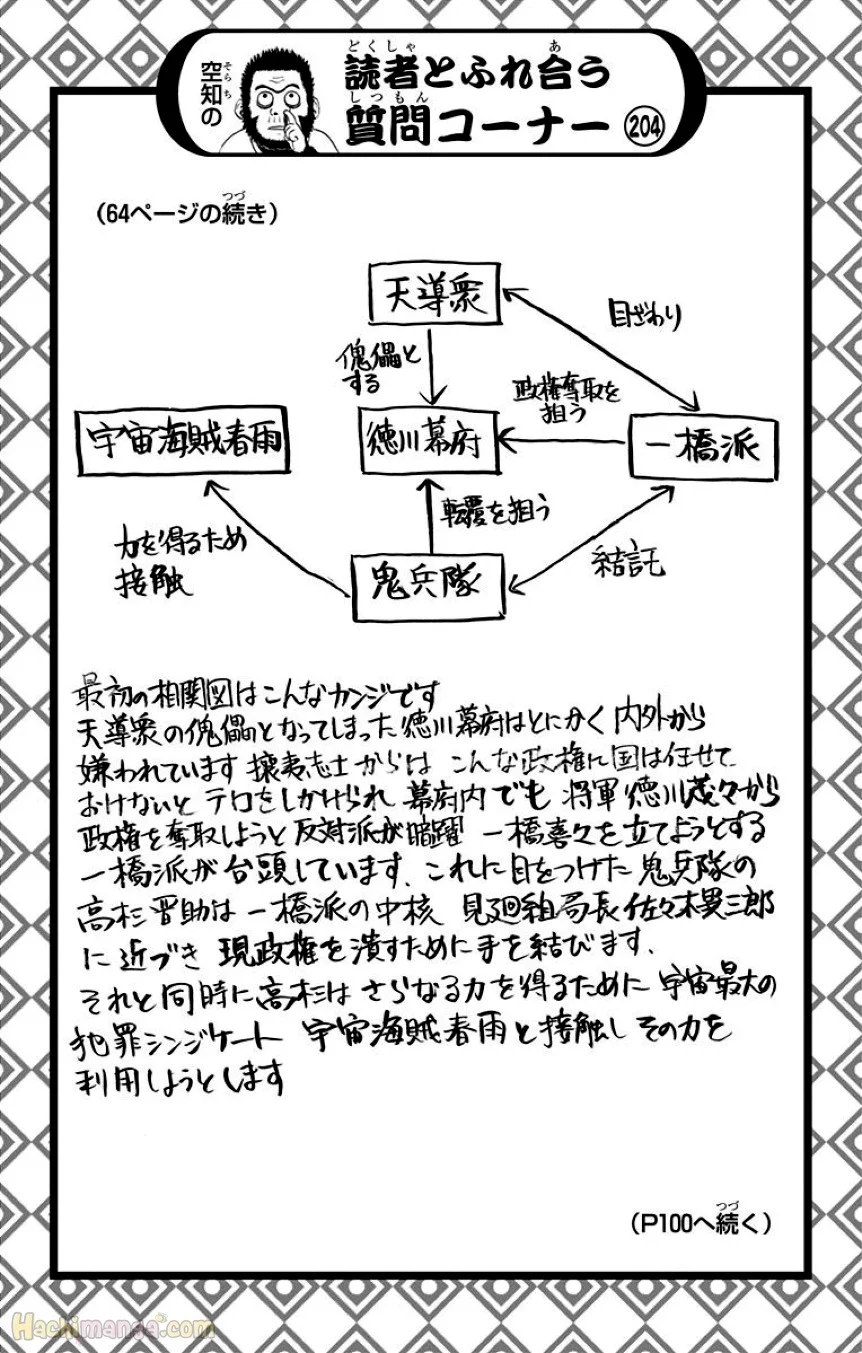 空知の
読者とふれ合う
質問コーナー 204
そらち
どくしゃ
あ
しつもん
(64ページの続き)
つづ
天導衆
目ざわり
傀儡と
する
政権奪取を
狙う
宇宙海賊春雨
徳川幕府
一橋派
転覆を狙う
力を得るため
接触
鬼兵隊
結託
最初の相関図はこんなカンジです
天導衆の傀儡となってしまった徳川幕府はとにかく内外から
嫌われています 攘夷志士からは こんな政権に国は任せて
おけないと テロをしかけられ 幕府内でも 将軍徳川茂々から
政権を奪取しようと反対派が暗躍 一橋喜々を立てようとする
一橋派が台頭しています、これに目をつけた鬼兵隊の
高杉晋助は一橋派の中核 見廻組局長佐々木異三郎
に近づき 現政権を潰すために手を結びます、
それと同時に高杉は さらなる力を得るために 宇宙最大の
犯罪シンジケート 宇宙海賊春雨と接触し その力を
利用しようとします
(P100へ続く)
つづ
Hachimanga.com